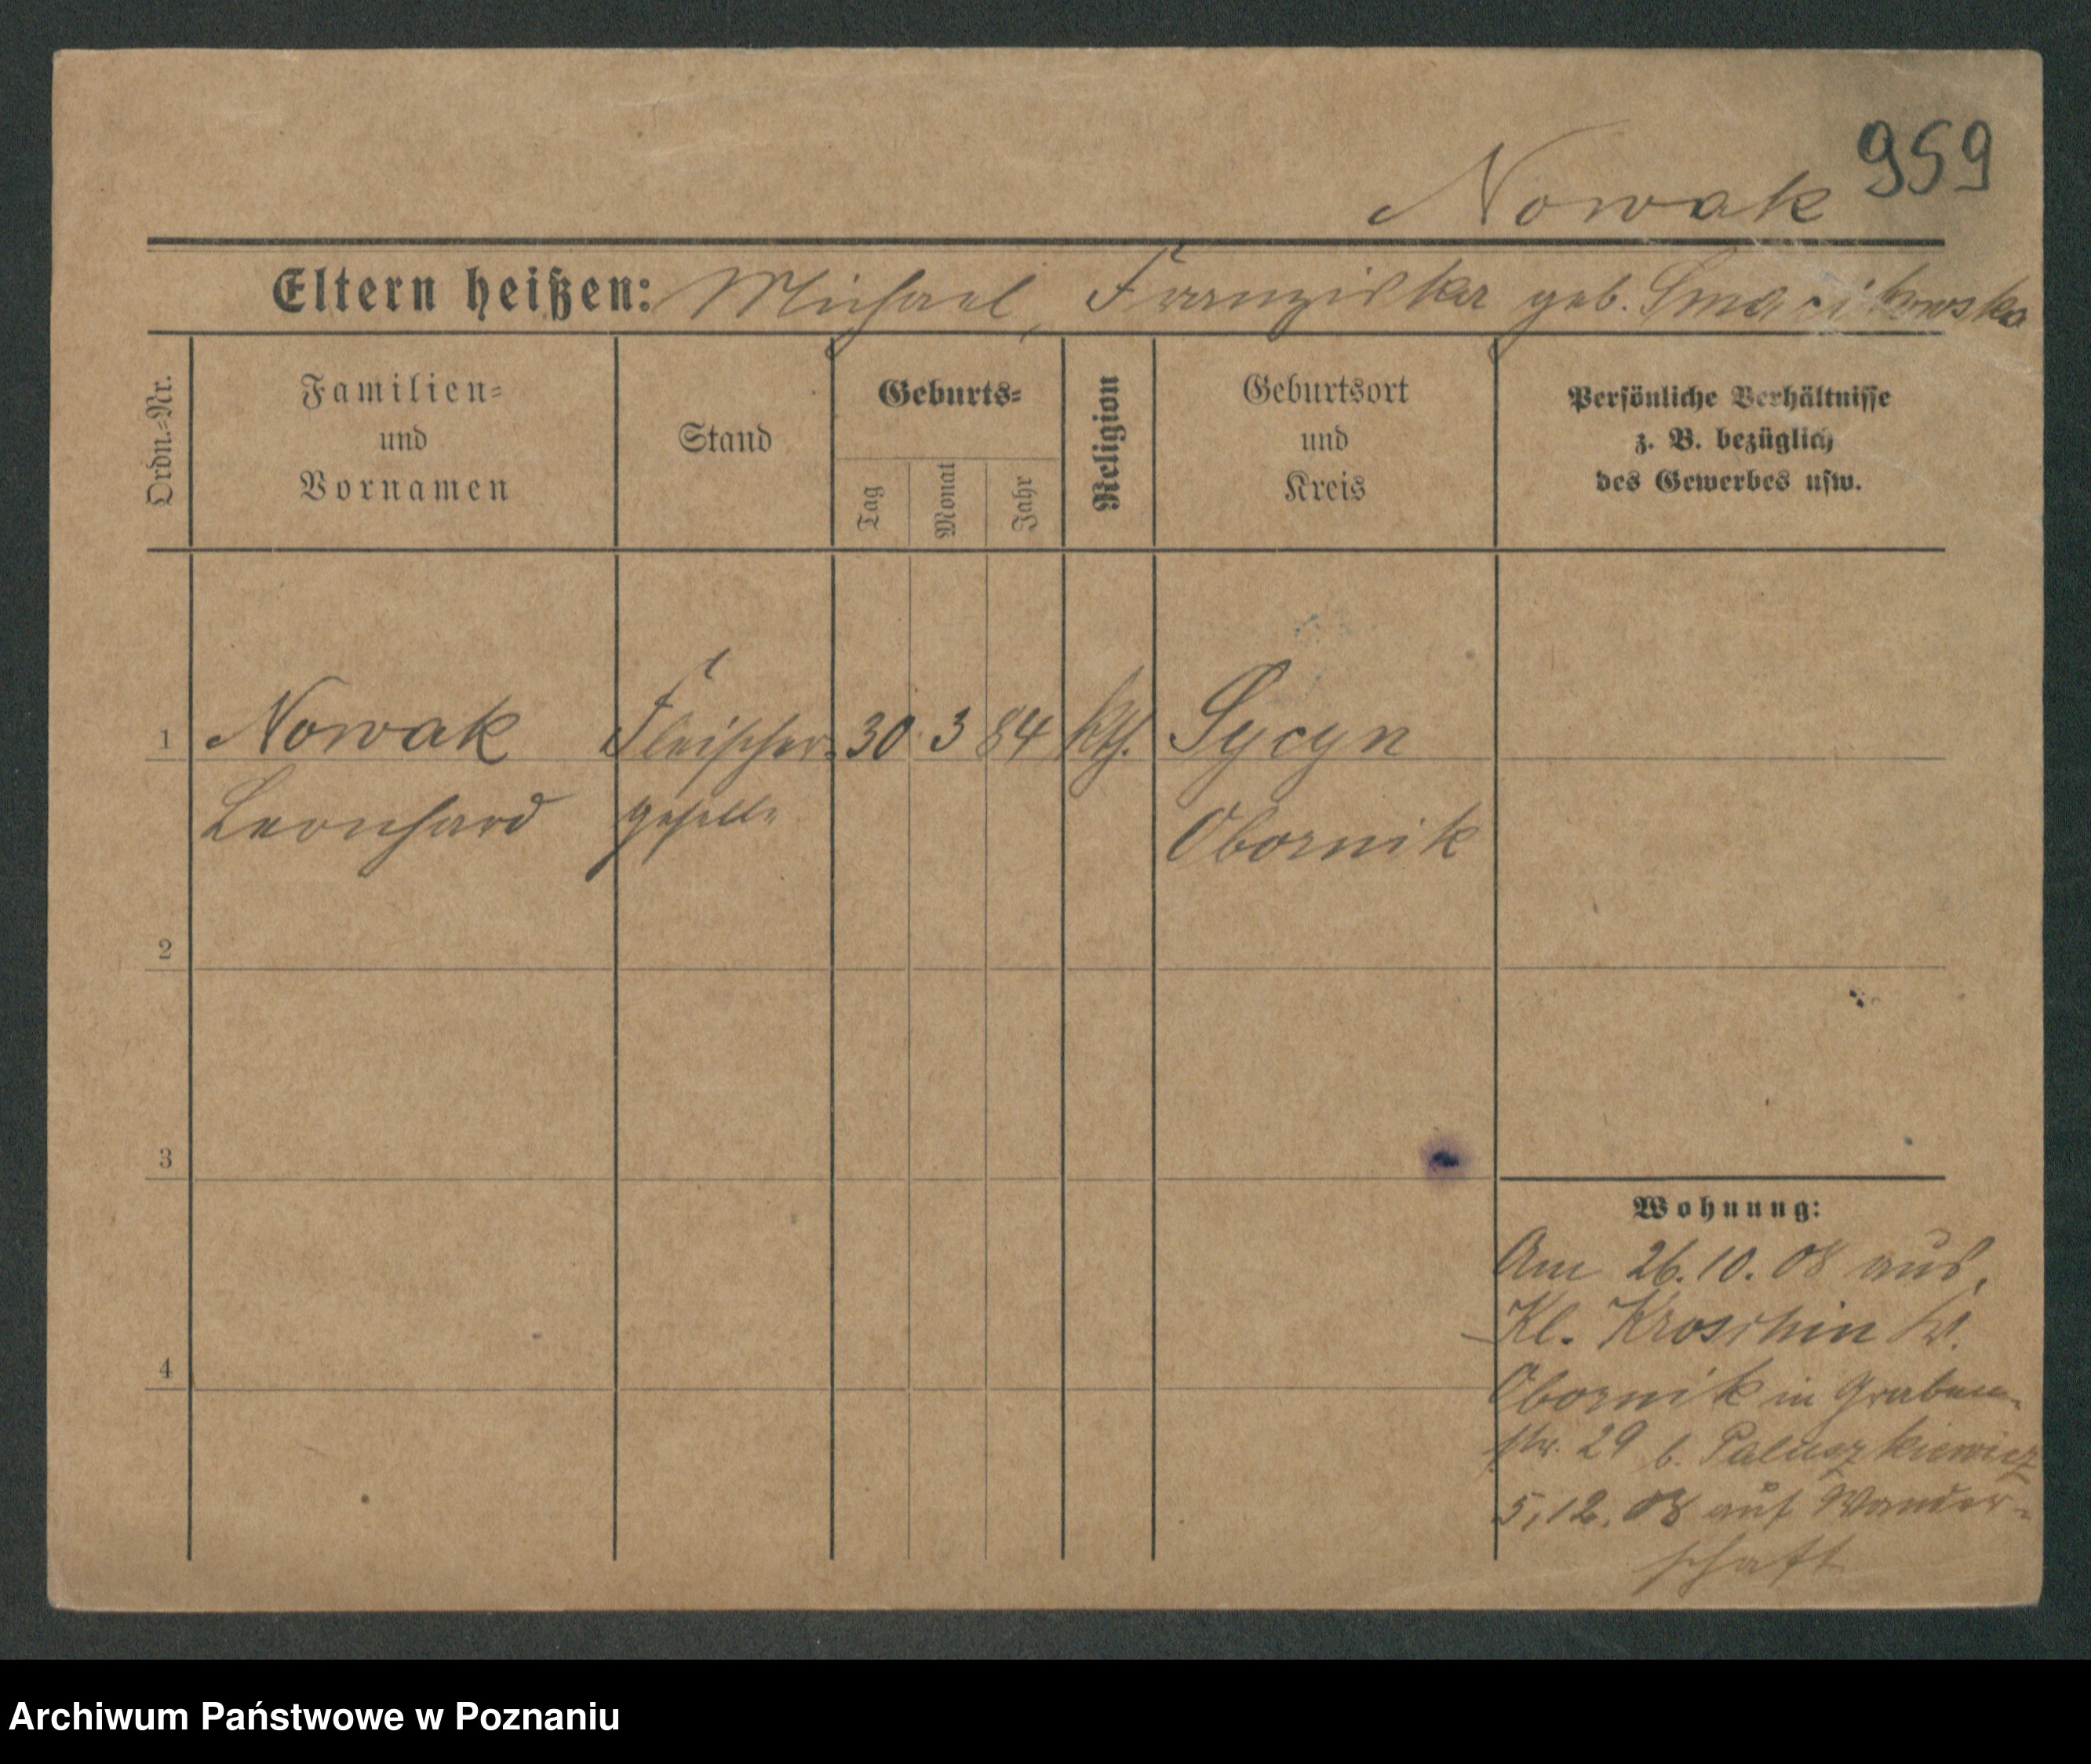 959
Nowak
Eltern heißen: Michael, Franziska geb.
Ordn.-Nr.
Familien-
und
Vornamen
Stand
Geburts-
Tag
Monat
Jahr
Religion
Geburtsort
und
Kreis
Persönliche Verhältnisse
z. B. bezüglich
des Gewerbes usw.
1 Nowak Fleischer- 30 3 84 kth. Sycyn
Leonhard geselle Obornik
2
3
4
Wohnung:
Am 26.10.08 aus
Kl. Kroschin
Obornik in Graben-
str. 29 b. Paluszkiewicz
5.12.08 auf Wander-
schaft
Archiwum Państwowe w Poznaniu